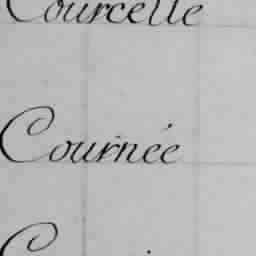 Courcelle
Cournée